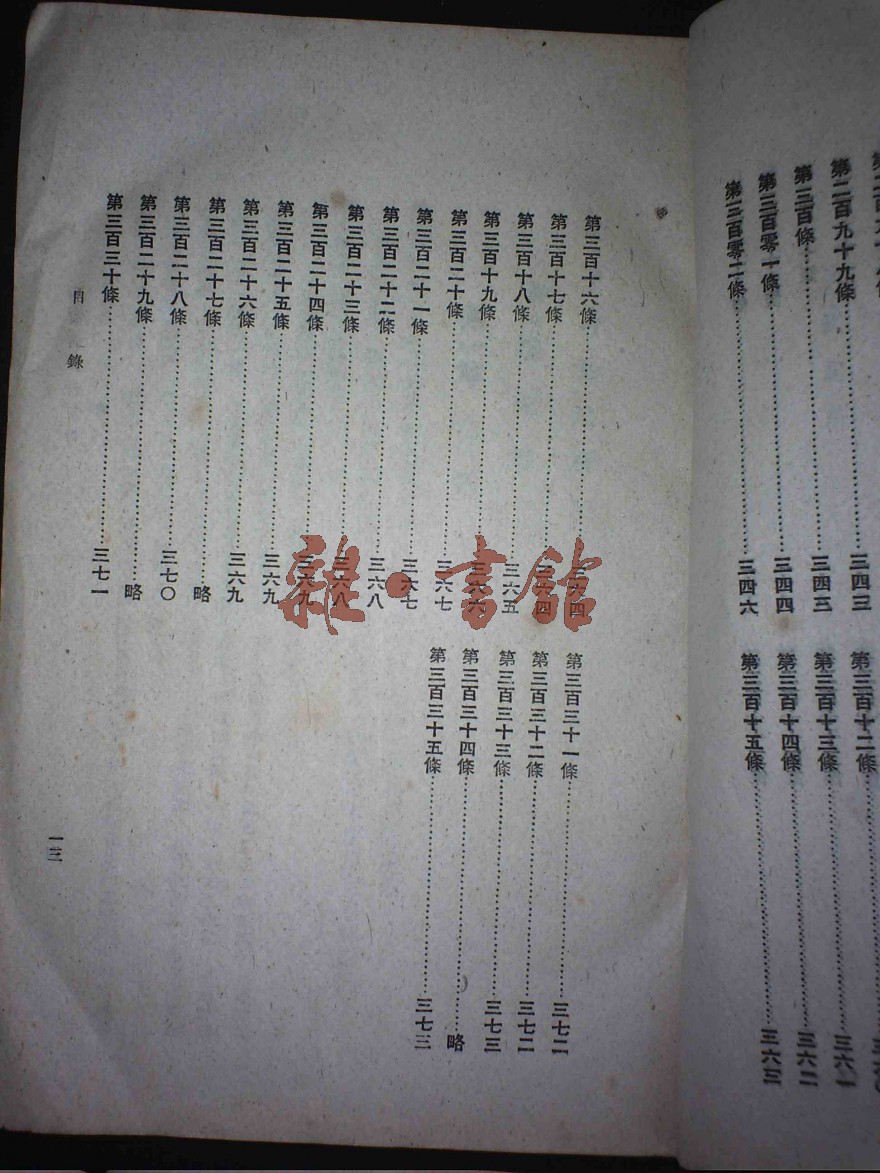 第二百九十九條……三四三
第三百條……三四三
第三百零一條……三四四
第三百零二條……三四六
第三百十二條……
第三百十三條……三六一
第三百十四條……三六二
第三百十五條……三六三
第三百十六條……三六四
第三百十七條……三六四
第三百十八條……三六五
第三百十九條……三六六
第三百二十條……三六七
第三百二十一條……三六七
第三百二十二條……三六八
第三百二十三條……三六八
第三百二十四條……三六九
第三百二十五條……三六九
第三百二十六條……三六九
第三百二十七條……略
第三百二十八條……三七〇
第三百二十九條……略
第三百三十條……三七一
第三百三十一條……三七二
第三百三十二條……三七二
第三百三十三條……三七三
第三百三十四條……略
第三百三十五條……三七三
目 錄
一三
雜·書館